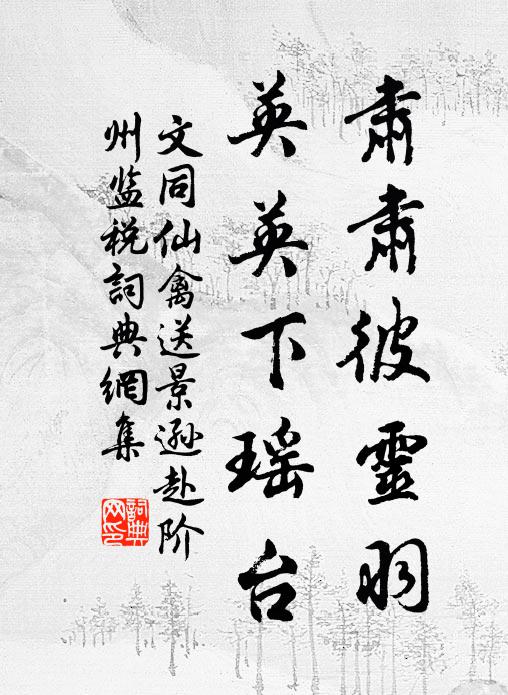 肅肅彼靈羽
英英下瑶台
文同仙禽送景遜赴阶
州监税詞典網集
詞典
网印